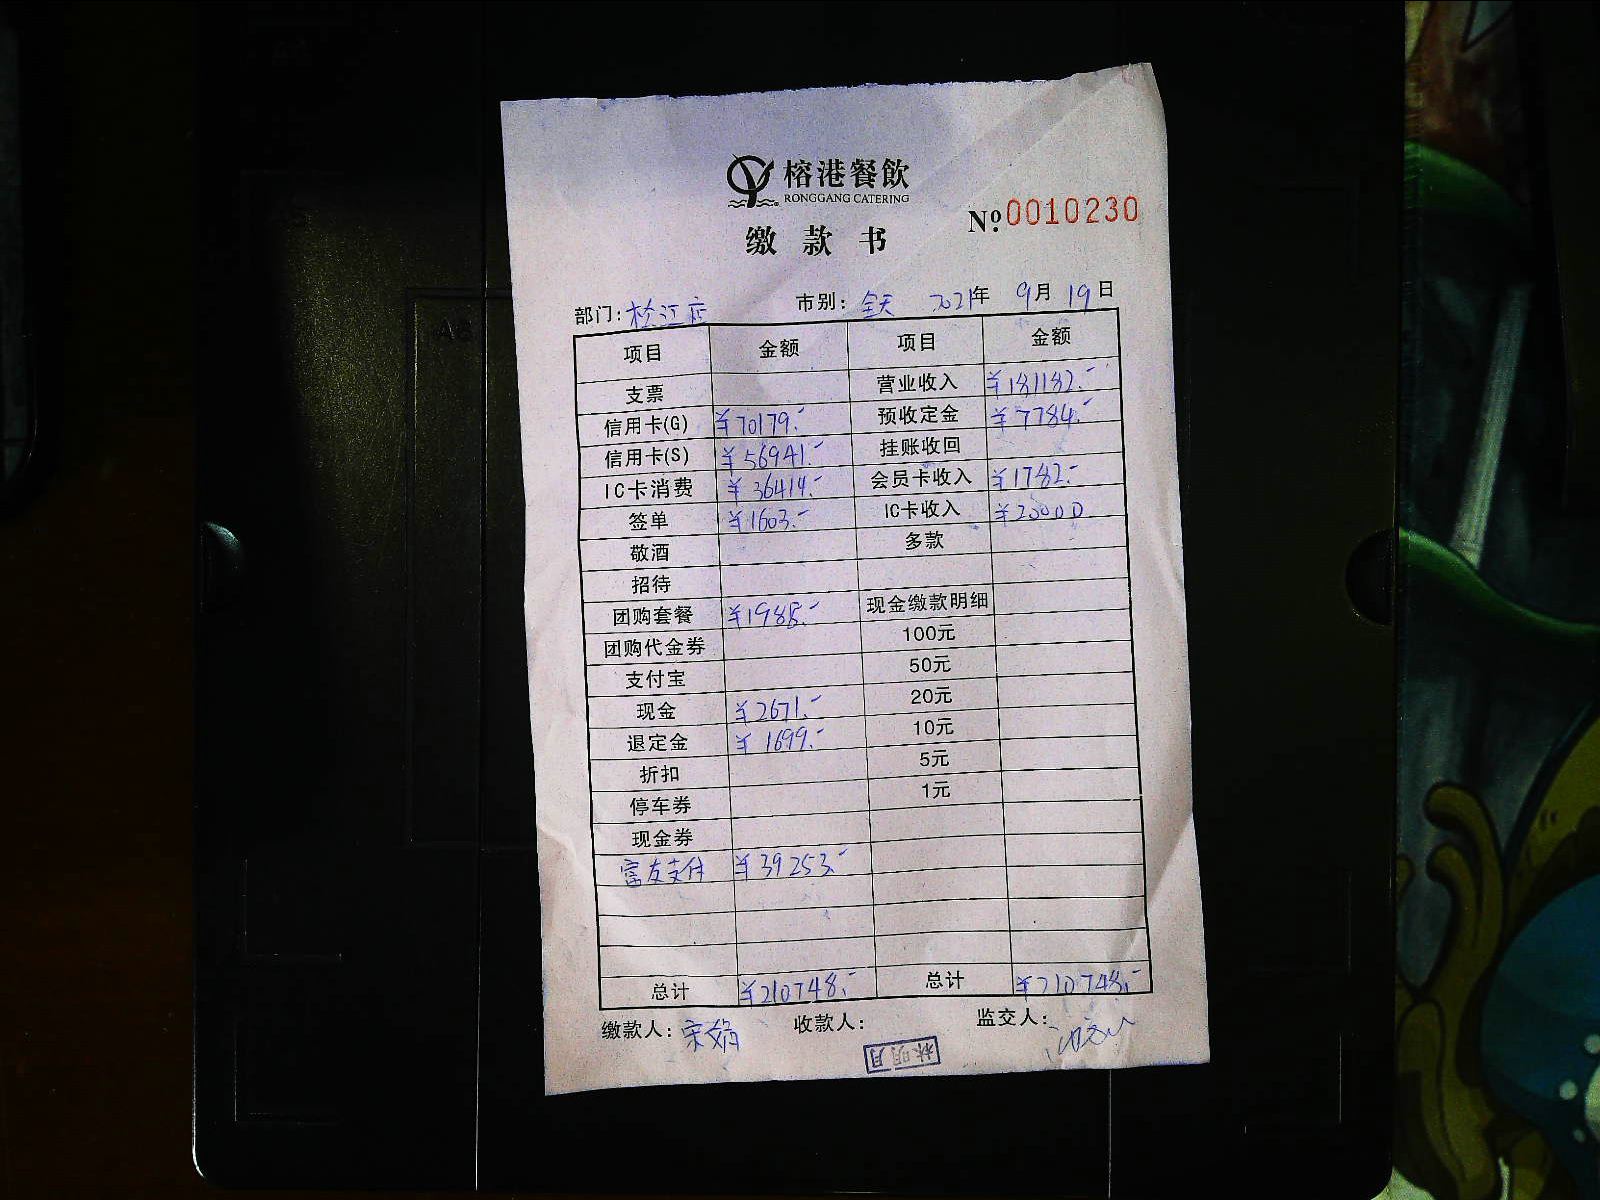 榕港餐飲
RONGGANG CATERING
缴款书
№ 0010230
部门: 松江店 市别: 全天 2021年 9月 19日
项目 金额 项目 金额
支票 营业收入 ¥181182.-
信用卡(G) ¥70179.- 预收定金 ¥7784.-
信用卡(S) ¥56941.- 挂账收回
IC卡消费 ¥36414.- 会员卡收入 ¥1782.-
签单 ¥1603.- IC卡收入 ¥20000
敬酒 多款
招待
团购套餐 ¥1988.- 现金缴款明细
团购代金券 100元
支付宝 50元
现金 ¥2671.- 20元
退定金 ¥1699.- 10元
折扣 5元
停车券 1元
现金券
富友支付 ¥39253.-
总计 ¥210748.- 总计 ¥210748.-
缴款人: 宋娟 收款人: 监交人:
林明月